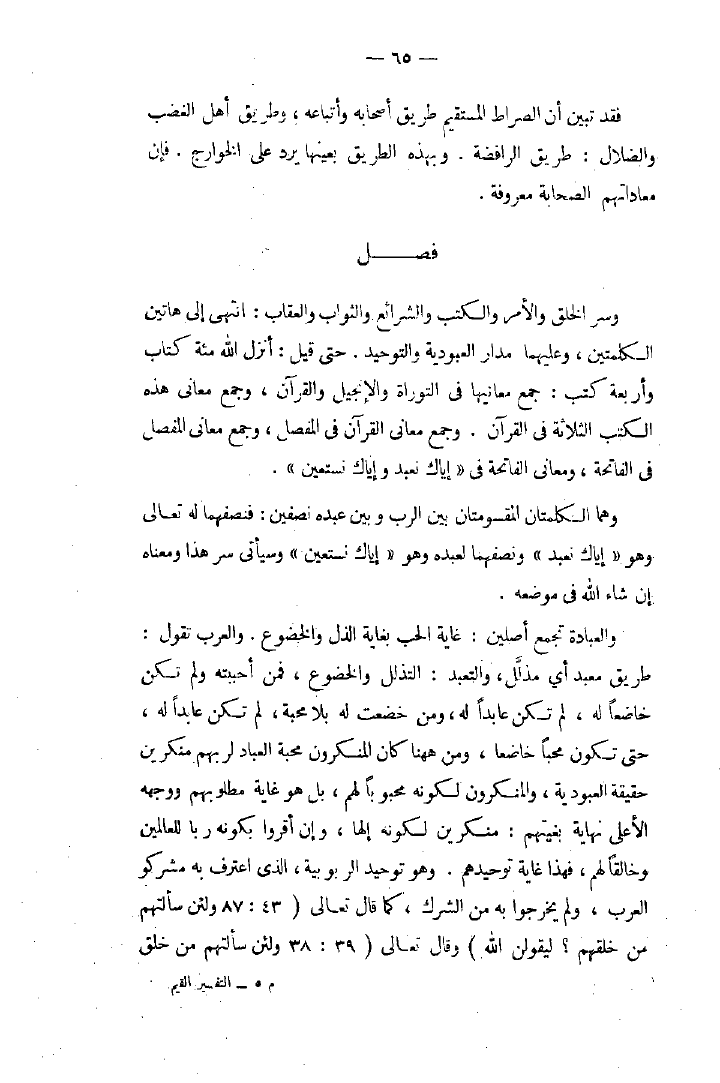 — ٦٥ —
فقد تبين أن الصراط المستقيم طريق أصحابه وأتباعه ، وطريق أهل الغضب
والضلال : طريق الرافضة . وبهذه الطريق بعينها يرد على الخوارج . فإن
معاداتهم الصحابة معروفة .
فصــــل
وسر الخلق والأمر والكتب والشرائع والثواب والعقاب : انتهى إلى هاتين
الكلمتين ، وعليهما مدار العبودية والتوحيد . حتى قيل : أنزل الله مئة كتاب
وأربعة كتب : جمع معانيها فى التوراة والإنجيل والقرآن ، وجمع معانى هذه
الكتب الثلاثة فى القرآن . وجمع معانى القرآن فى المفصل ، وجمع معانى المفصل
فى الفاتحة ، ومعانى الفاتحة فى « إياك نعبد وإياك نستعين » .
وهما الكلمتان المقسومتان بين الرب وبين عبده نصفين : فنصفهما له تعالى
وهو « إياك نعبد » ونصفهما لعبده وهو « إياك نستعين » وسيأتى سر هذا ومعناه
إن شاء الله فى موضعه .
والعبادة تجمع أصلين : غاية الحب بغاية الذل والخضوع . والعرب تقول :
طريق معبد أي مذلَّل، والتعبد : التذلل والخضوع ، فمن أحببته ولم تكن
خاضعاً له ، لم تكن عابداً له ، ومن خضعت له بلا محبة ، لم تكن عابداً له ،
حتى تكون محباً خاضعا ، ومن ههنا كان المنكرون محبة العباد لربهم منكرين
حقيقة العبودية ، والمنكرون لكونه محبوباً لهم ، بل هو غاية مطلوبهم ووجهه
الأعلى نهاية بغيتهم : منكرين لكونه إلها ، وإن أقروا بكونه ربا للعالمين
وخالقاً لهم ، فهذا غاية توحيدهم . وهو توحيد الربوبية ، الذى اعترف به مشركو
العرب ، ولم يخرجوا به من الشرك ، كما قال تعالى ( ٤٣ : ٨٧ ولئن سألتهم
من خلقهم ؟ ليقولن الله ) وقال تعالى ( ٣٩ : ٣٨ ولئن سألتهم من خلق
م ٥ ــ التفسير القيم